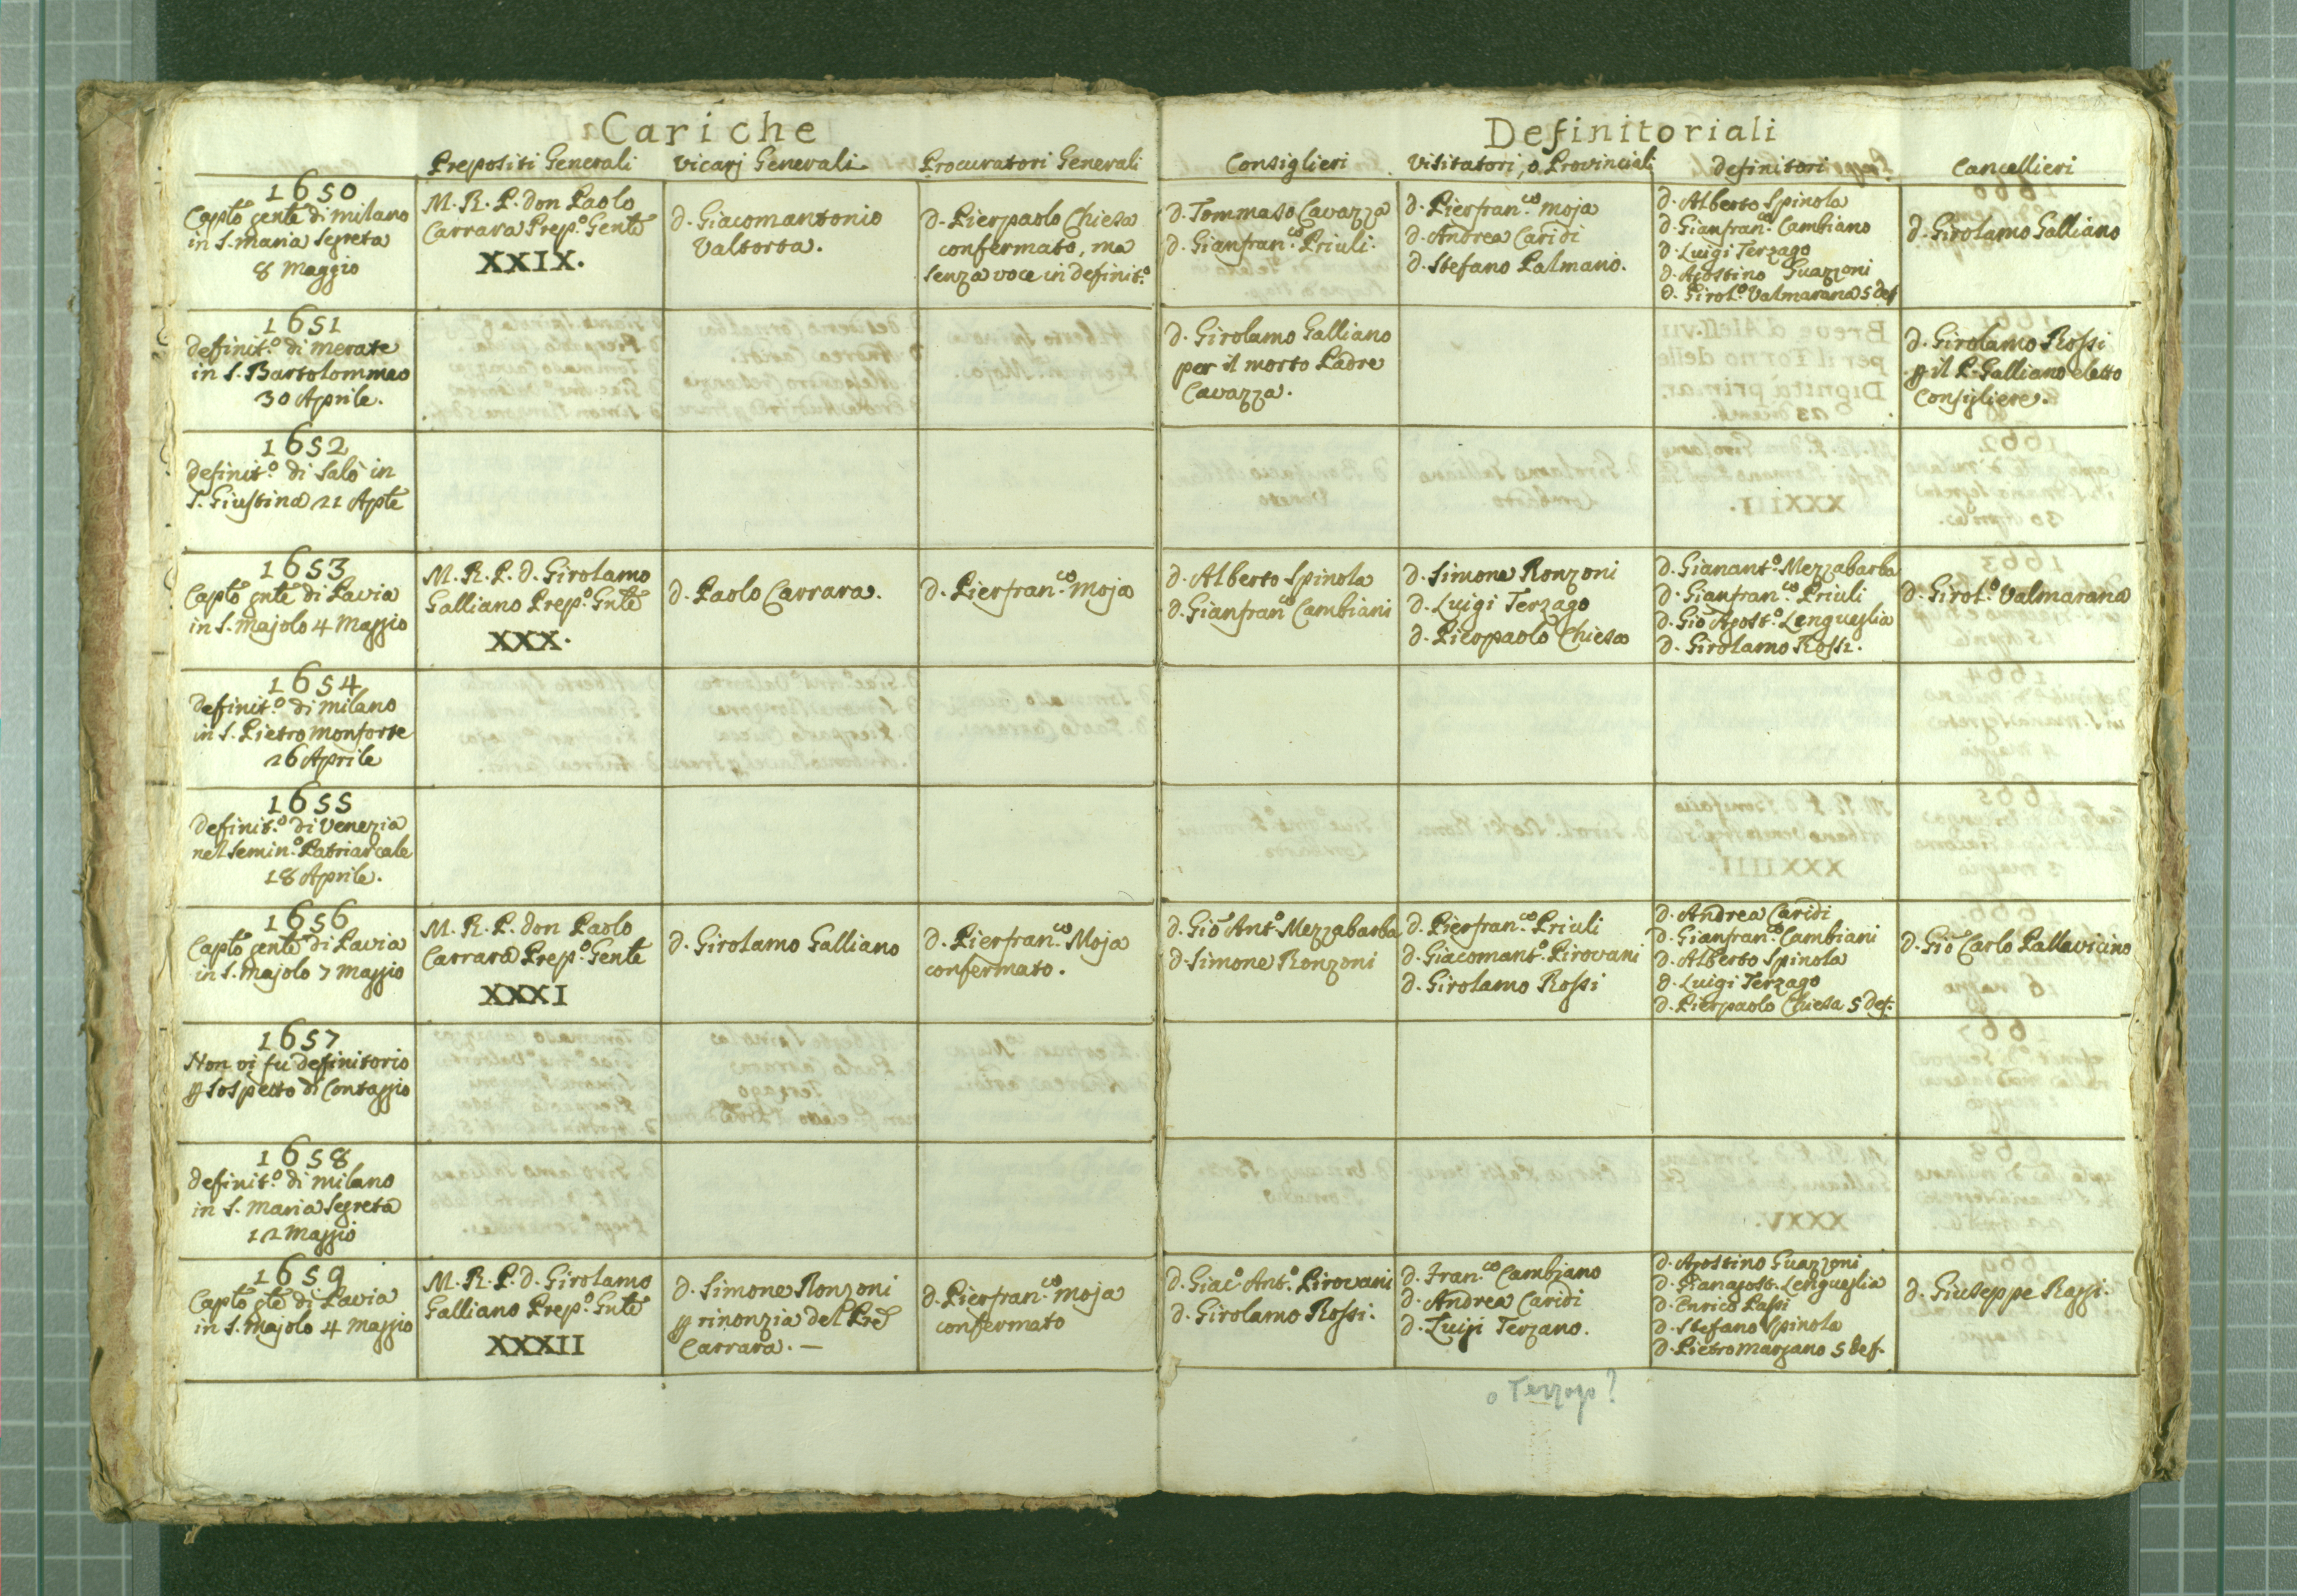 Cariche
Definitoriali
Prepositi Generali
Vicarj Generali
Procuratori Generali
Consiglieri
Visitatori, o Provinciali
Definitori
Cancellieri
1650
Caplõ gentẽ di milano
in S. maria Segreta
8 Maggio
M. R. P. don Paolo
Carrara Prep.º Gentẽ
XXIX.
d. Giacomantonio
Valtorta.
d. Pierpaolo Chiesa
confermato, ma
senza voce in definit.º
d. Tommaso Cavazza
d. Gianfran.co Priuli.
d. Pierfran.co Moja
d. Andrea Caridi
d. Stefano Palmano.
d. Alberto Spinola
d. Gianfran.co Cambiano
d. Luigi Terzago
d. Agostino Guazzoni
d. Girol.º Valmarana 5 def
d. Girolamo Galliano
1651
definit.º di merate
in S. Bartolommeo
30 Aprile.
d. Girolamo Galliano
per il morto Padre
Cavazza.
d. Girolamo Rossi
p il P. Galliano eletto
Consigliere.
1652
definit.º di Salò in
S. Giustina 21 Aplẽ
1653
Caplõ gntẽ di Pavia
in S. Majolo 4 Maggio
M. R. P. d. Girolamo
Galliano Prep.º Gntẽ
XXX.
d. Paolo Carrara.
d. Pierfran.co Moja
d. Alberto Spinola
d. Gianfran.co Cambiani
d. Simone Ronzoni
d. Luigi Terzago
d. Pierpaolo Chiesa
d. Gianant.º Mezzabarba
d. Gianfran.co Priuli
d. Gio Agost.º Lengueglia
d. Girolamo Rossi.
d. Girol.º Valmarana
1654
definit.º di milano
in S. Pietro Monforte
26 Aprile
1655
definit.º di Venezia
nel Semin.º Patriarcale
18 Aprile.
1656
Caplõ gentẽ di Pavia
in S. Majolo 7 Maggio
M. R. P. don Paolo
Carrara Prep.º Gentẽ
XXXI
d. Girolamo Galliano
d. Pierfran.co Moja
confermato.
d. Giõ Ant.º Mezzabarba
d. Simone Ronzoni
d. Pierfran.co Priuli
d. Giacomant.º Pirovani
d. Girolamo Rossi
d. Andrea Caridi
d. Gianfran.co Cambiani
d. Alberto Spinola
d. Luigi Terzago
d. Pierpaolo Chiesa 5 def.
d. Giõ Carlo Pallavicino
1657
Non vi fu definitorio
p sospetto di Contaggio
1658
definit.º di milano
in S. Maria Segreta
12 Maggio
1659
Caplõ gtẽ di Pavia
in S. Majolo 4 Maggio
M. R. P. d. Girolamo
Galliano Prep.º Gntẽ
XXXII
d. Simone Ronzoni
p rinonzia del Prẽ
Carrara. —
d. Pierfran.co Moja
confermato
d. Giac.º Ant.º Pirovani
d. Girolamo Rossi.
d. Fran.co Cambiano
d. Andrea Caridi
d. Luigi Terzano.
d. Agostino Guazzoni
d. Gianagost. Lengueglia
d. Enrico Passi
d. Stefano Spinola
d. Pietro Marzano 5 def.
d. Giuseppe Razzi.
o Terzago?